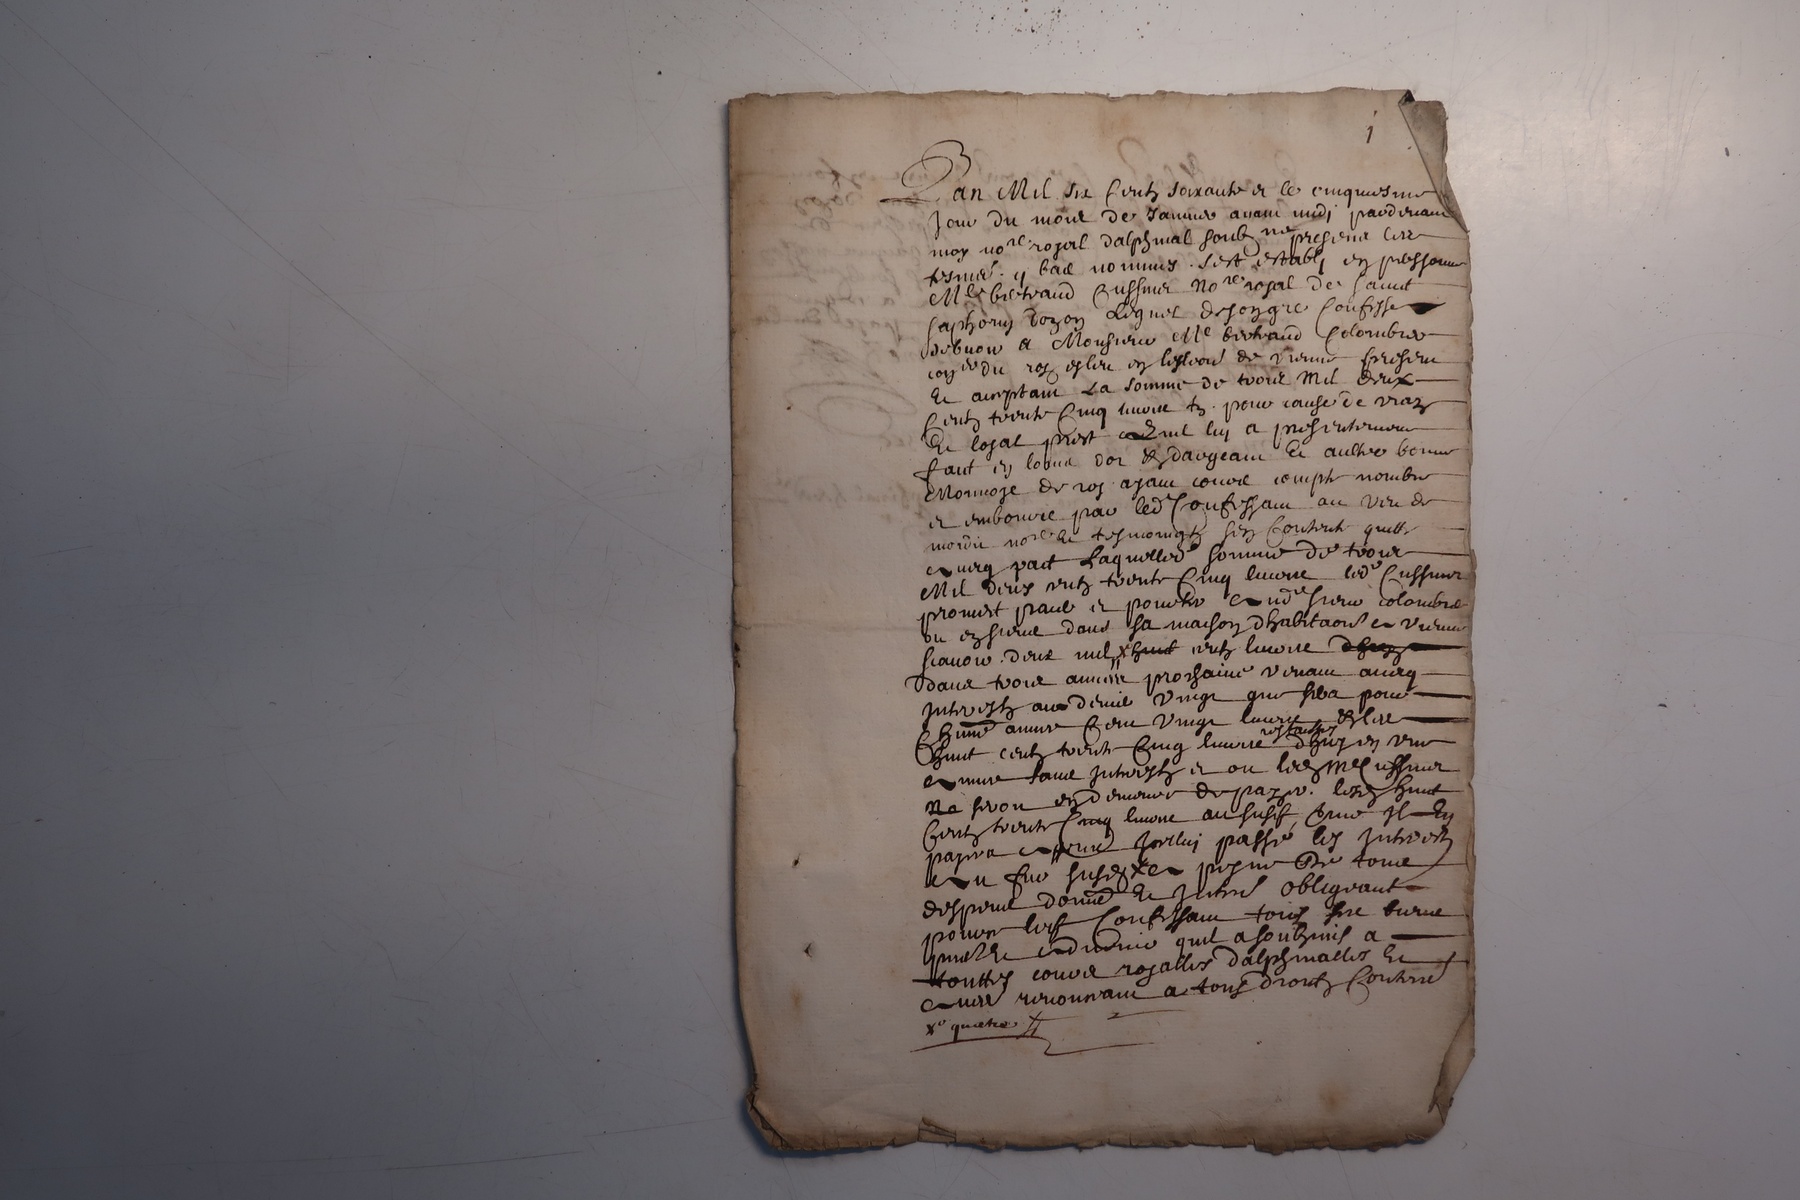 1
Lan Mil six Centz soixante et le cinquiesme
Jour du mois de Janvier avant midj pardevant
moy no.re royal dalphinal soubz.ne present les
tesmo. y bas nommes sest establj en personne
M.e bertrand Cussinet No.re royal de saint
saphorin dozon Lequel de son gre Confesse
Debvoir a Monsieur M.e bertrand Colombier
con.er du roy esleu en leslection de vienne present
Et acceptant La somme de trois Mil deux
Centz trente Cinq livres tz. pour cause de vray
Et loyal prest quil luy a presentement
faict en louis dor & dargeant Et aultre bonne
Monnoye de roy ayant cours compte nombre
et embource par led. Confessant au veu de
moydit no.re Et tesmoingtz sen Contente quitte
avecq pact Laquelle d. somme de trois
Mil deux centz trente Cinq livres led. Cussinet
promect paier et pourter aud. sieur colombier
ou es siens dans sa maison dhabitaon a vienne
scavoir deux mil x huict centz livres dhuy
dans trois annees prochaines venant avecq
Interestz au denier vingt que sera pour
Ch.une annee Cent vingt livres & les
huict centz trente Cinq livres restantes dhuy en une
annee sans Interestz et ou led. M.e Cussinet
Ne seroit en demeure de payer lesd. huict
Centz trente Cinq livres au susd. Jl en
payera Jcelluj passe les Interestz
au fur susd. x a peyne De tous
despens domm. Et Interes obligeant
pour ce led. Confessant tous ses biens
pntz Et advenir quil a soubzmis a
touttes cours royalles dalphinalles Et
aultres renonceant a tous droitz Contres
x.o quatre